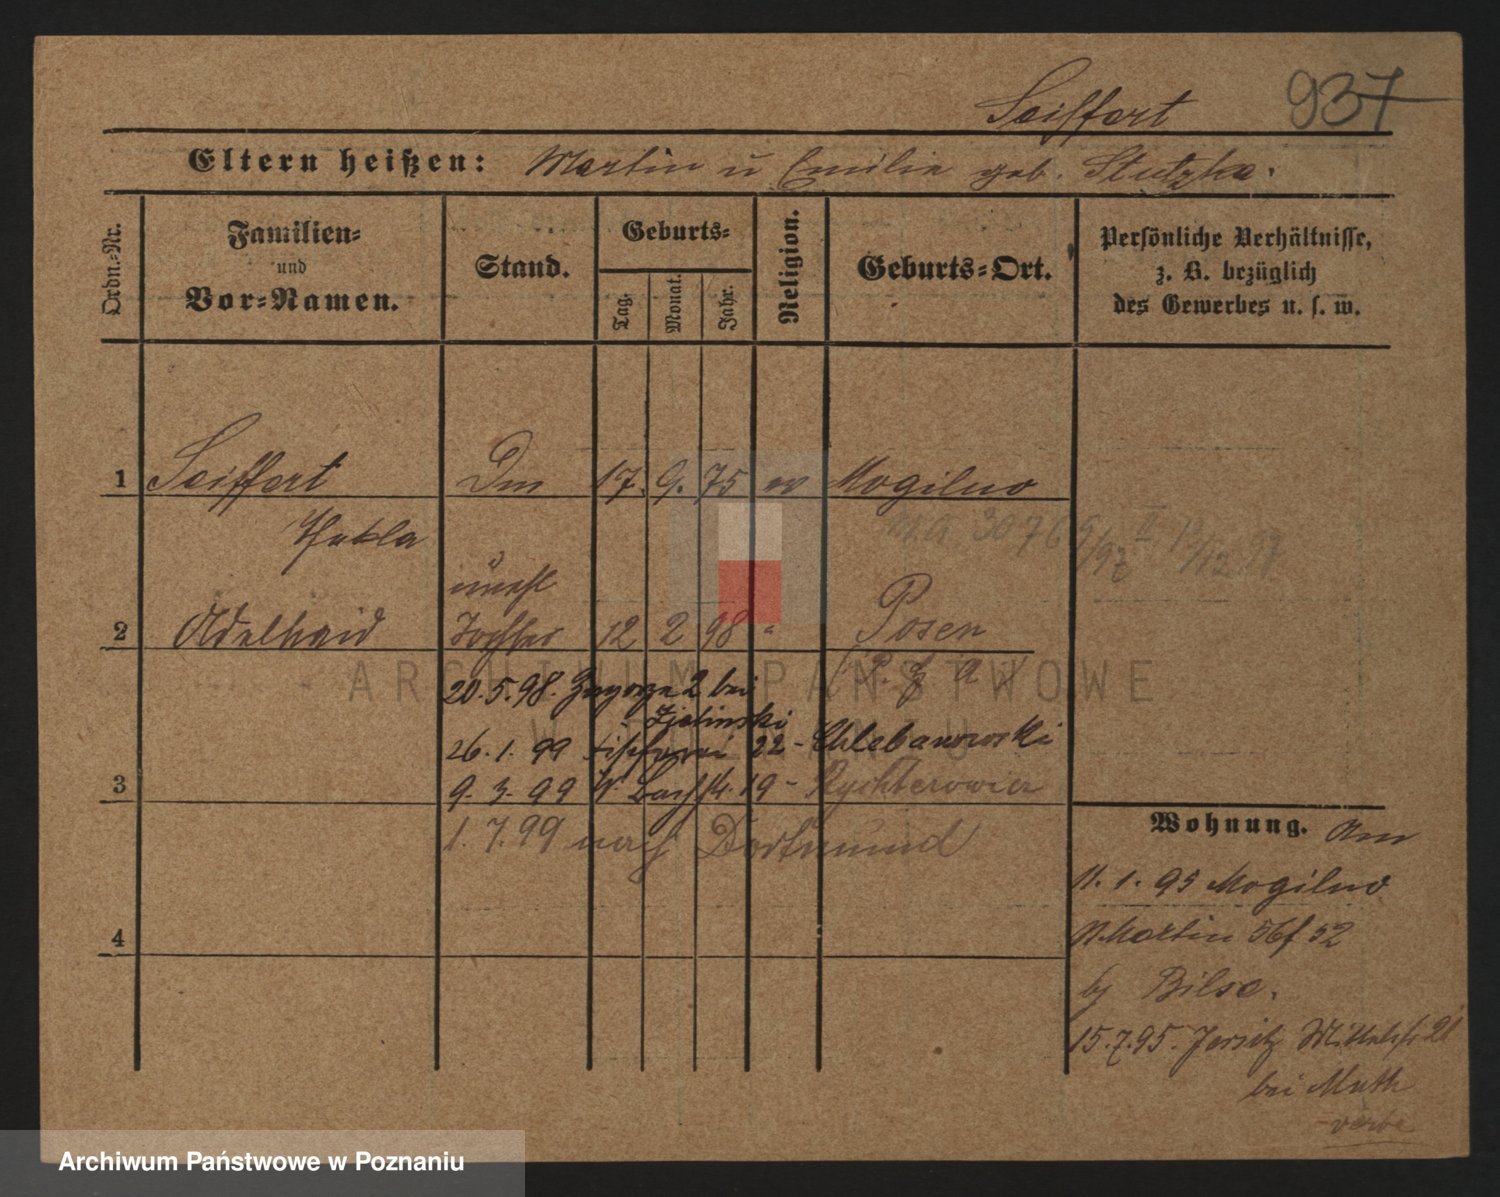 Seiffert 937
Eltern heißen: Martin u Emilie geb. Stutzka.
Ordn.-Nr.
Familien-
und
Vor-Namen.
Stand.
Geburts-
Tag.
Monat.
Jahr.
Religion.
Geburts-Ort.
Persönliche Verhältnisse,
z. B. bezüglich
des Gewerbes u. s. w.
1 Seiffert Dm 17. 9. 75 ev Mogilno
Thekla
unehl
2 Adelheid Tochter 12 2 98 " Posen
20.5.98. 2 bei
Zielinski
26. 1. 99 22 - Chlebanowski
3 9. 3. 99 19 - Rychterowicz
1. 7. 99 nach Dortmund
4
Wohnung. Am
11. 1. 95 Mogilno
Martin 52
bj Bilse.
15.7.95. Jersitz
bei Muth
ARCHIWUM PAŃSTWOWE
W POZNANIU
Archiwum Państwowe w Poznaniu